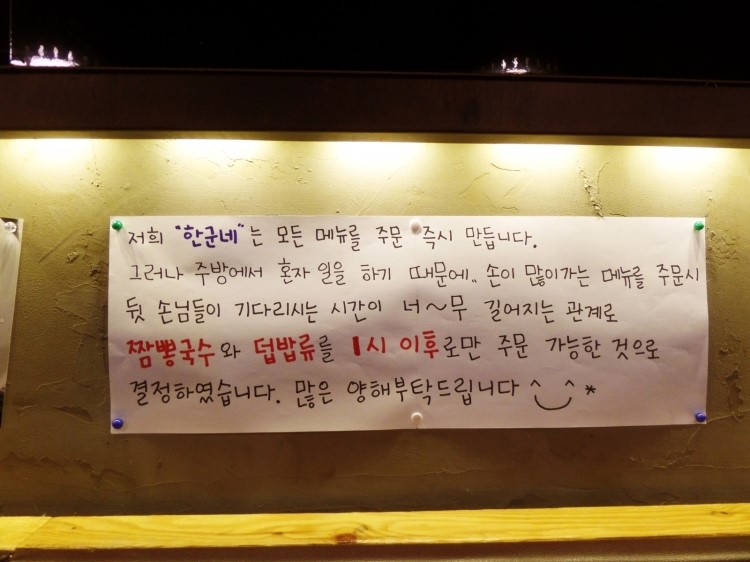 저희 "한군네"는 모든 메뉴를 주문 즉시 만듭니다.
그러나 주방에서 혼자 일을 하기 때문에.. 손이 많이가는 메뉴를 주문시
뒷 손님들이 기다리시는 시간이 너~무 길어지는 관계로
짬뽕국수와 덥밥류를 1시 이후로만 주문 가능한 것으로
결정하였습니다. 많은 양해부탁드립니다 ^‿^*